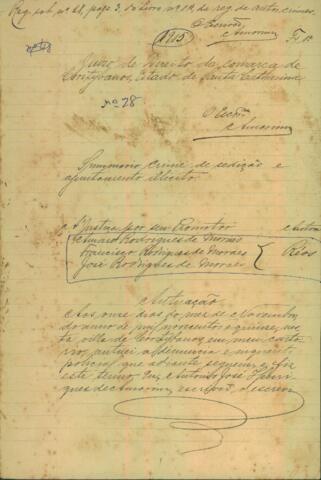 Reg. sob nº 28, pags 3, do Livro nº 1º, de reg. de autos crimes.
O Escrivão
Amorim
1915
Fl 1ª
Juizo de Direito da Comarca de
Coritybanos, Estado de Santa Catharina
Nº 28
O Escrm
Amorim
Summario Crime de sedição e
ajuntamento illicito.
A Justiça por seu Promotor Autora
Rodrigues de Moraes
Francisco Rodrigues de Moraes
José Rodrigues de Moraes
Réos
Autuação
Aos onze dias do mez de Novembro
do anno de mil novecentos e quinze, nes
ta villa de Coritybanos, em meu carto
rio, autuei a denuncia e inquerito
policial que adiante seguem; e fiz
este termo. Eu, Antonio José Henri
ques de Amorim, escrivão, o escrevi